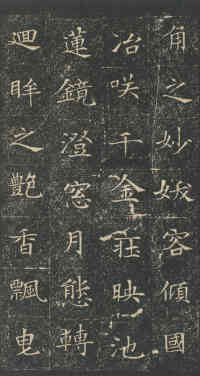 角之妙妭容傾國
冶咲千金莊映池
蓮鏡澄窓月態轉
迴眸之艷香飄曳